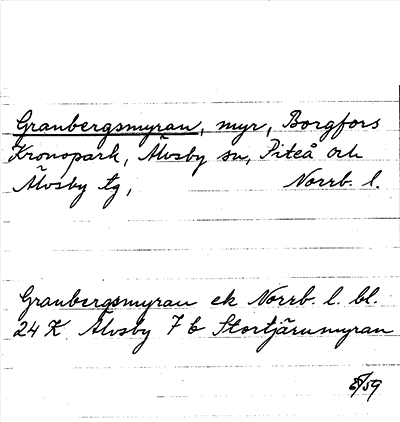 Granbergsmyran, myr, Borgfors
Kronopark, Älvsby sn, Piteå och
Älvsby tg, Norrb. l.
Granbergsmyran ek Norrb. l. bl.
24 K Älvsby 7 b Stortjärnmyran
/59